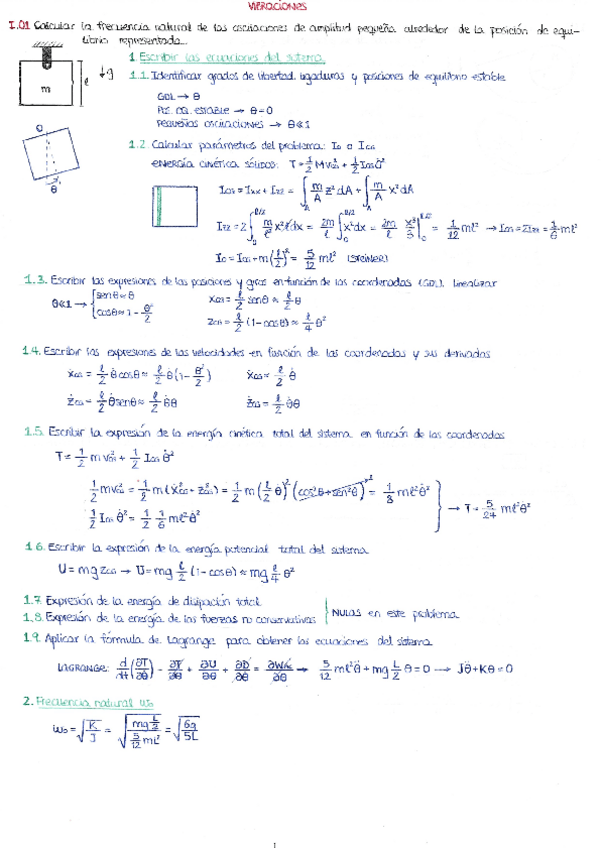 VIBRACIONES
I.01 Calcular la frecuencia natural de las oscilaciones de amplitud pequeña alrededor de la posición de equi-
librio representada.
1. Escribir las ecuaciones del sistema
1.1. Identificar grados de libertad, ligaduras y posiciones de equilibrio estable
m
l
↓g
GDL → θ
POS. EQ. ESTABLE → θ=0
PEQUEÑAS OSCILACIONES → θ≪1
O
θ
1.2. Calcular parámetros del problema: I₀ o I_CG
ENERGÍA CINÉTICA SÓLIDOS: T = 1/2 M v_CG² + 1/2 I_CG θ̇²
I_CG = I_XX + I_ZZ = ∫_A m/A z² dA + ∫_A m/A x² dA
I_ZZ = 2 ∫₀^{l/2} m/l² x² l dx = 2m/l ∫₀^{l/2} x² dx = 2m/l x³/3 |₀^{l/2} = 1/12 ml² → I_CG = 2I_ZZ = 1/6 ml²
I_O = I_CG + m(l/2)² = 5/12 ml² (STEINER)
1.3. Escribir las expresiones de las posiciones y giros en función de las coordenadas (GDL). Linealizar
θ≪1 → { senθ≈θ
cosθ≈1-θ²/2
x_CG = l/2 senθ ≈ l/2 θ
z_CG = l/2 (1-cosθ) ≈ l/4 θ²
1.4. Escribir las expresiones de las velocidades en función de las coordenadas y sus derivadas
ẋ_CG = l/2 θ̇ cosθ ≈ l/2 θ̇ (1-θ²/2) ẋ_CG ≈ l/2 θ̇
ż_CG = l/2 θ̇ senθ ≈ l/2 θ̇θ ż_CG = l/2 θ̇θ
1.5. Escribir la expresión de la energía cinética total del sistema en función de las coordenadas
T = 1/2 m v_CG² + 1/2 I_CG θ̇²
1/2 m v_CG² = 1/2 m (ẋ_CG² + ż_CG²) = 1/2 m (l/2 θ̇)² (cos²θ + sen²θ) = 1/8 ml²θ̇²
1/2 I_CG θ̇² = 1/2 1/6 ml²θ̇²
→ T = 5/24 ml²θ̇²
1.6. Escribir la expresión de la energía potencial total del sistema
U = mg z_CG → U = mg l/2 (1-cosθ) ≈ mg l/4 θ²
1.7. Expresión de la energía de disipación total
1.8. Expresión de la energía de las fuerzas no conservativas
NULAS en este problema
1.9. Aplicar la fórmula de Lagrange para obtener las ecuaciones del sistema
LAGRANGE: d/dt (∂T/∂θ̇) - ∂T/∂θ + ∂U/∂θ + ∂D/∂θ̇ = ∂W/∂θ → 5/12 ml²θ̈ + mg L/2 θ = 0 → Jθ̈ + Kθ = 0
2. Frecuencia natural ω₀
ω₀ = √(K/J) = √(mg L/2 / 5/12 mL²) = √(6g/5L)
1